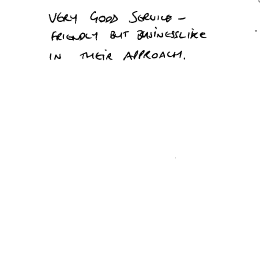 VERY GOOD SERVICE –
FRIENDLY BUT BUSINESSLIKE
IN THEIR APPROACH.